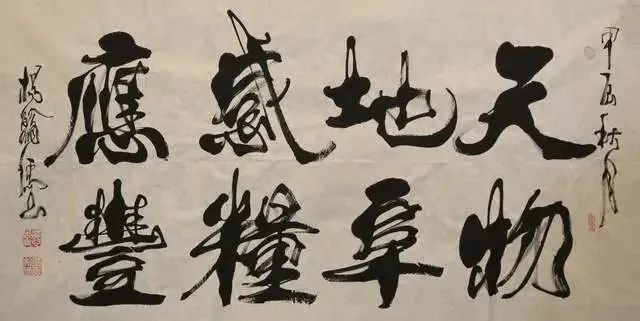 甲辰秋月
天地感應
物阜糧豐
楊